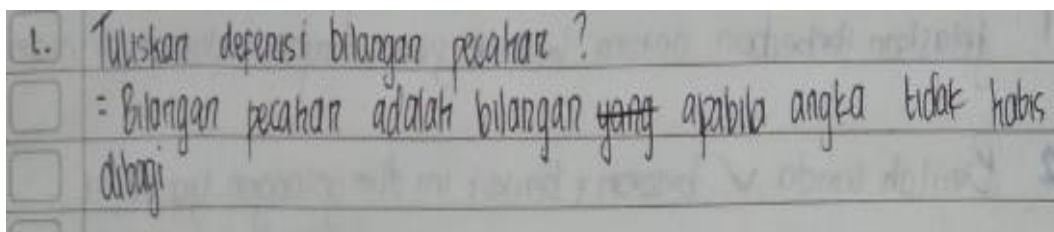 1. Tuliskan defenisi bilangan pecahan ?
= Bilangan pecahan adalah bilangan yang apabila angka tidak habis
dibagi